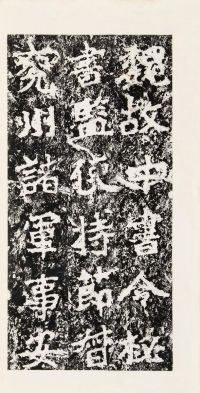 魏故中書令秘
書監使持節督
兗州諸軍事安